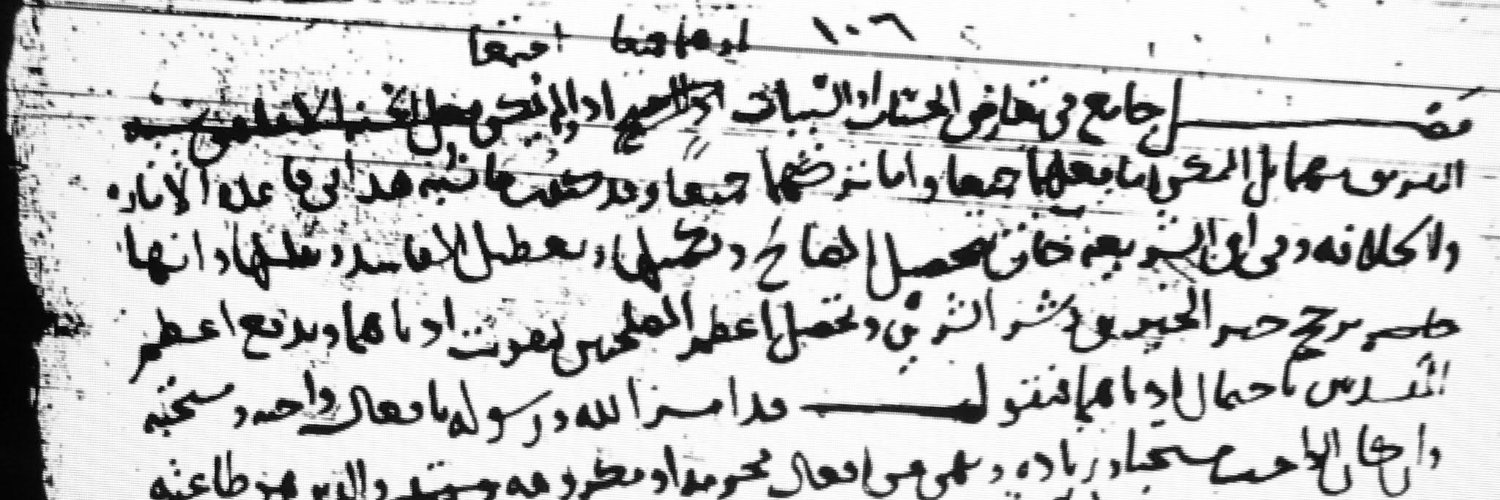 ١٠٦
فصل جامع في تعارض الحسنات او السيئات او اذا لم يمكن
بينهما بل الممكن اما فعلهما جميعا واما تركهما جميعا وقد كتبت ما يشبه هذا في قاعدة الامارة
والخلافة وفي ان الشريعة جاءت بتحصيل المصالح وتكميلها وتعطيل المفاسد وتقليلها وانها
ترجح خير الخيرين وشر الشرين وتحصل اعظم المصلحتين بتفويت ادناهما وتدفع اعظم
المفسدتين باحتمال ادناهما فنقول قد امر الله ورسوله بافعال واجبة ومستحبة
وان كان الواجب مستحبا وزيادة ونهى عن افعال محرمة او مكروهة والدين هو طاعته